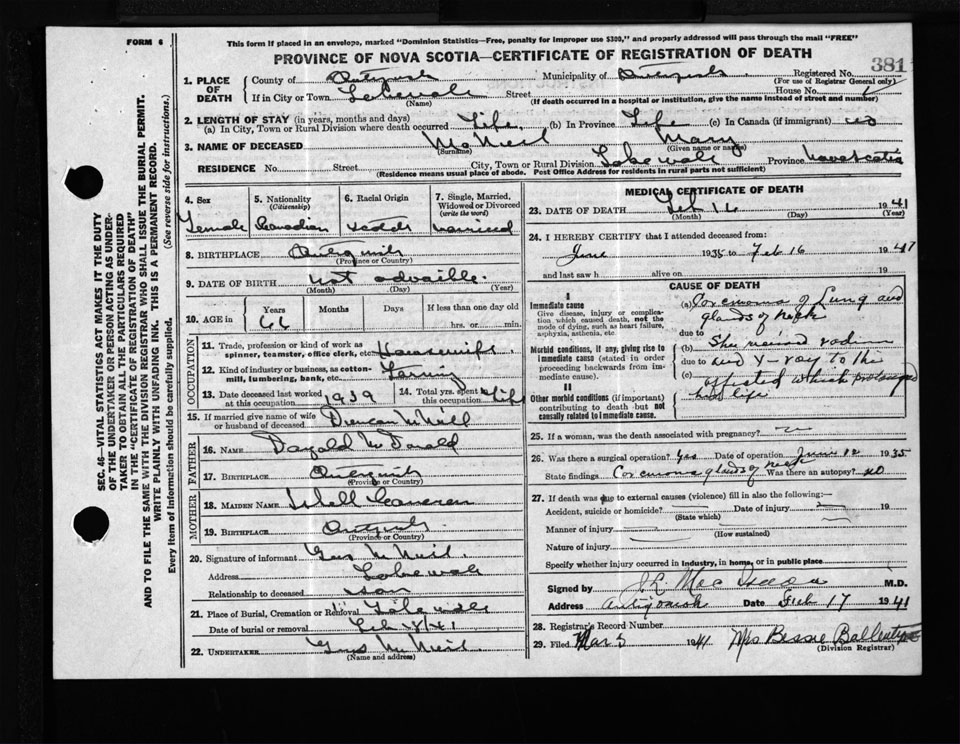 FORM 6
This form if placed in an envelope, marked "Dominion Statistics—Free, penalty for improper use $300," and properly addressed will pass through the mail "FREE"
PROVINCE OF NOVA SCOTIA—CERTIFICATE OF REGISTRATION OF DEATH
381
SEC. 46—VITAL STATISTICS ACT MAKES IT THE DUTY
OF THE UNDERTAKER OR PERSON ACTING AS UNDER-
TAKER TO OBTAIN ALL THE PARTICULARS REQUIRED
IN THE "CERTIFICATE OF REGISTRATION OF DEATH"
AND TO FILE THE SAME WITH THE DIVISION REGISTRAR WHO SHALL ISSUE THE BURIAL PERMIT.
WRITE PLAINLY WITH UNFADING INK. THIS IS A PERMANENT RECORD.
Every item of Information should be carefully supplied. (See reverse side for instructions.)
1. PLACE OF DEATH
County of Municipality of Registered No.
(For use of Registrar General only)
If in City or Town Street House No.
(Name) (If death occurred in a hospital or institution, give the name instead of street and number)
2. LENGTH OF STAY (in years, months and days)
(a) In City, Town or Rural Division where death occurred Life (b) In Province Life (c) In Canada (if immigrant) no
3. NAME OF DECEASED McNeil Mary
(Surname) (Given name or names)
RESIDENCE No. Street City, Town or Rural Division Province Nova Scotia
(Residence means usual place of abode. Post Office Address for residents in rural parts not sufficient)
4. Sex 5. Nationality (Citizenship) 6. Racial Origin 7. Single, Married, Widowed or Divorced (write the word)
Female Canadian Scotch Married
8. BIRTHPLACE
(Province or Country)
9. DATE OF BIRTH not
(Month) (Day) (Year)
10. AGE in Years Months Days If less than one day
66 hrs. or min.
OCCUPATION
11. Trade, profession or kind of work as spinner, teamster, office clerk, etc. Housewife
12. Kind of industry or business, as cotton-mill, lumbering, bank, etc.
13. Date deceased last worked at this occupation 1939 14. Total yrs. spent in this occupation Life
15. If married give name of wife or husband of deceased
FATHER
16. NAME
17. BIRTHPLACE
(Province or Country)
MOTHER
18. MAIDEN NAME Cameron
19. BIRTHPLACE
(Province or Country)
20. Signature of informant Gus McNeil
Address
Relationship to deceased son
21. Place of Burial, Cremation or Removal
Date of burial or removal Feb
22. UNDERTAKER Gus McNeil
(Name and address)
MEDICAL CERTIFICATE OF DEATH
23. DATE OF DEATH Feb 16 1941
(Month) (Day) (Year)
24. I HEREBY CERTIFY that I attended deceased from:
June 1935 to Feb 16 1941
and last saw h alive on 19
CAUSE OF DEATH
I
Immediate cause
Give disease, injury or complication which caused death, not the mode of dying, such as heart failure, asphyxia, asthenia, etc.
Morbid conditions, if any, giving rise to immediate cause (stated in order proceeding backwards from immediate cause).
II
Other morbid conditions (if important) contributing to death but not causally related to immediate cause.
(a) of Lung and
glands of neck
due to
(b) She received radium
due to and X-ray to the
(c) affected which prolonged
her life
25. If a woman, was the death associated with pregnancy?
26. Was there a surgical operation? yes Date of operation June 12 1935
State findings glands of neck Was there an autopsy? no
27. If death was due to external causes (violence) fill in also the following:—
Accident, suicide or homicide? Date of injury 19
(State which)
Manner of injury
(How sustained)
Nature of injury
Specify whether injury occurred in industry, in home, or in public place
Signed by M.D.
Address Antigonish Date Feb 17 1941
28. Registrar's Record Number
29. Filed Mar 5 1941 Mrs Bessie Ballentyne
(Division Registrar)